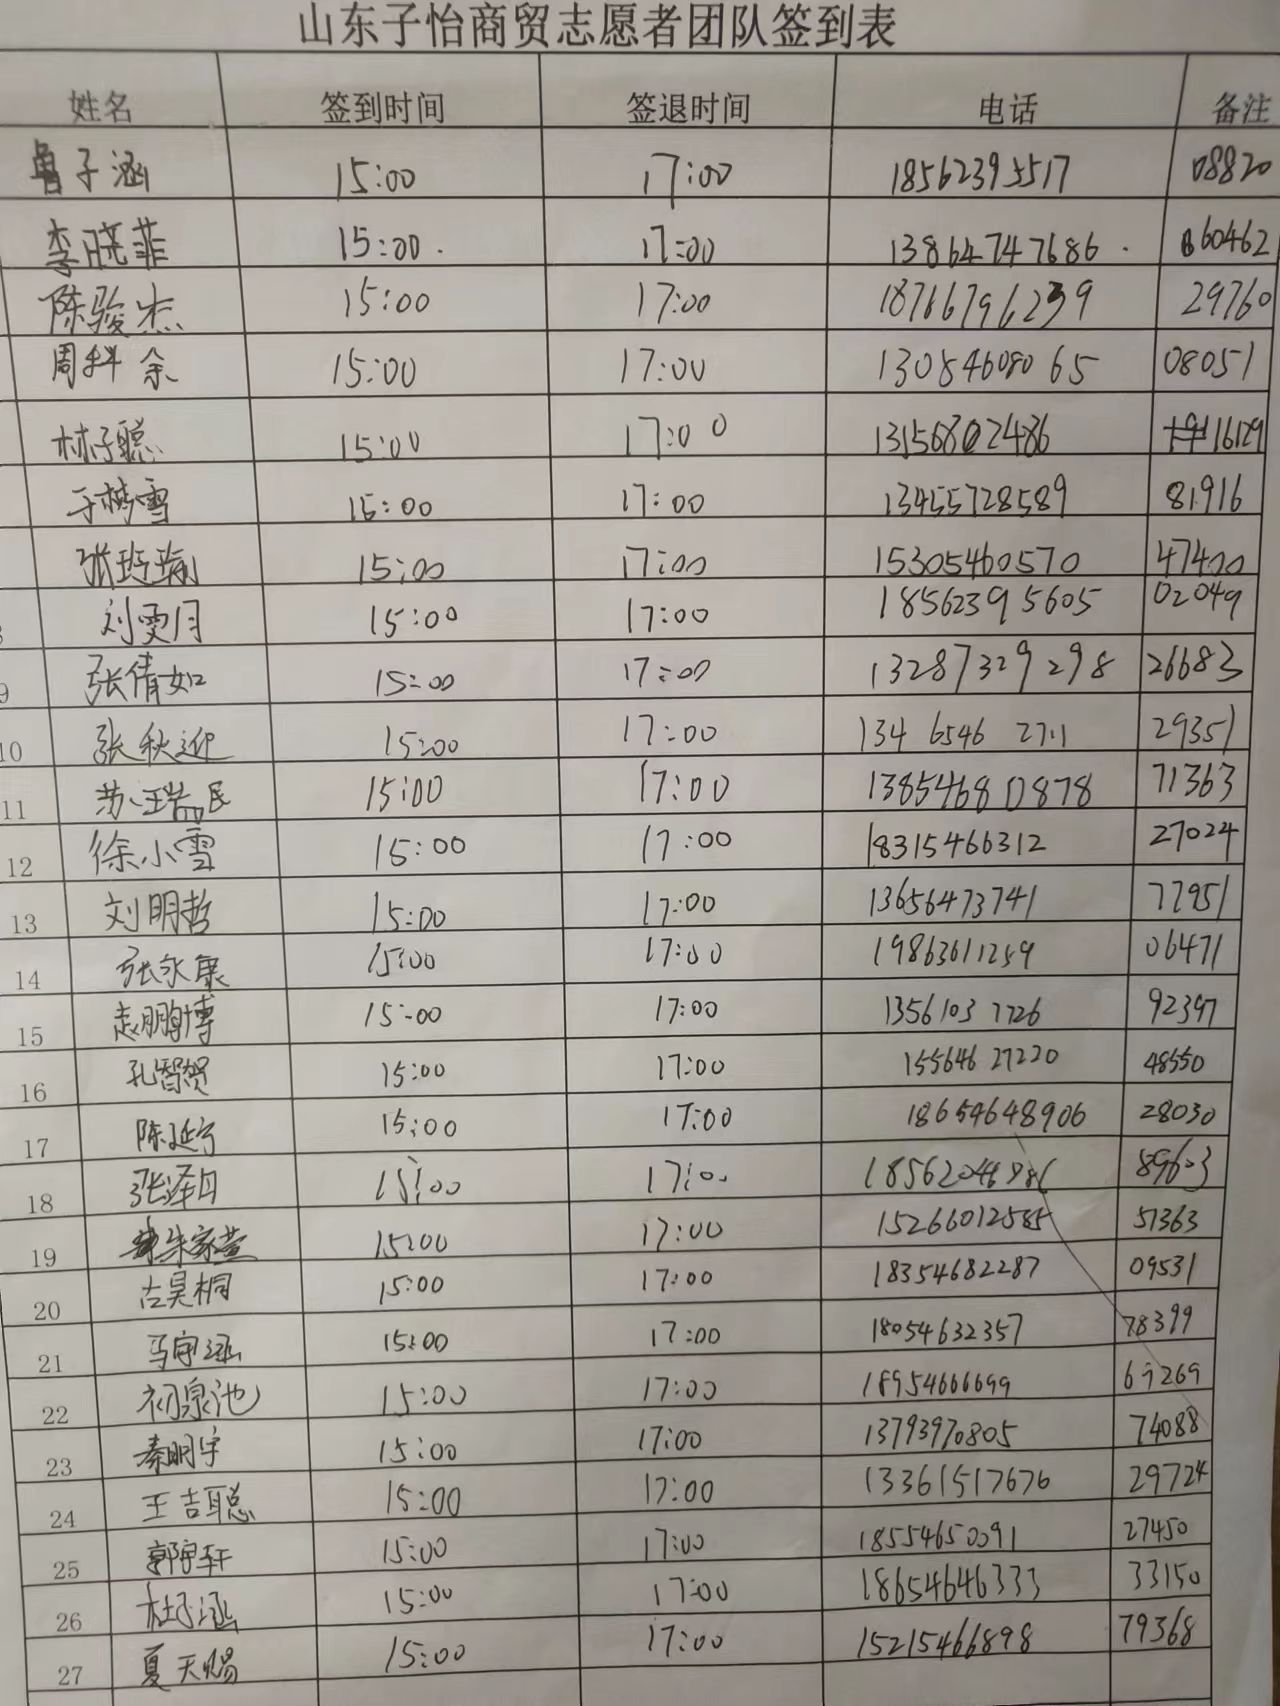 山东子怡商贸志愿者团队签到表
姓名 签到时间 签退时间 电话 备注
鲁子涵 15:00 17:00 18562395517 08820
李晓菲 15:00. 17:00 13864747686. 60462
陈骏杰 15:00 17:00 18766796239 29760
周科余 15:00 17:00 13084608065 08051
林子聪 15:00 17:00 13156802486 16129
于梦雪 15:00 17:00 13455728589 81916
张琦瑜 15:00 17:00 15305460570 47400
刘雯月 15:00 17:00 18562395605 02049
9 张倩如 15:00 17:00 13287329298 26683
10 张秋迎 15:00 17:00 134 6546 2711 29351
11 苏瑞民 15:00 17:00 13854680878 71363
12 徐小雪 15:00 17:00 18315466312 27024
13 刘明哲 15:00 17:00 13656473741 77951
14 张永康 15:00 17:00 19863611259 06471
15 袁鹏博 15:00 17:00 1356103 7726 92397
16 孔智贺 15:00 17:00 155646 27220 48550
17 陈延宁 15:00 17:00 18654648906 28030
18 张泽丹 15:00 17:00 89603
19 朱家萱 15:00 17:00 15266012585 51363
20 古昊桐 15:00 17:00 18354682287 09531
21 马宇涵 15:00 17:00 18054632357 78399
22 初泉池 15:00 17:00 18954666699 69269
23 秦明宇 15:00 17:00 13793970805 74088
24 王吉聪 15:00 17:00 13361517676 29724
25 郭宇轩 15:00 17:00 18554650091 27450
26 杜子涵 15:00 17:00 18654646333 33150
27 夏天赐 15:00 17:00 15215466898 79368